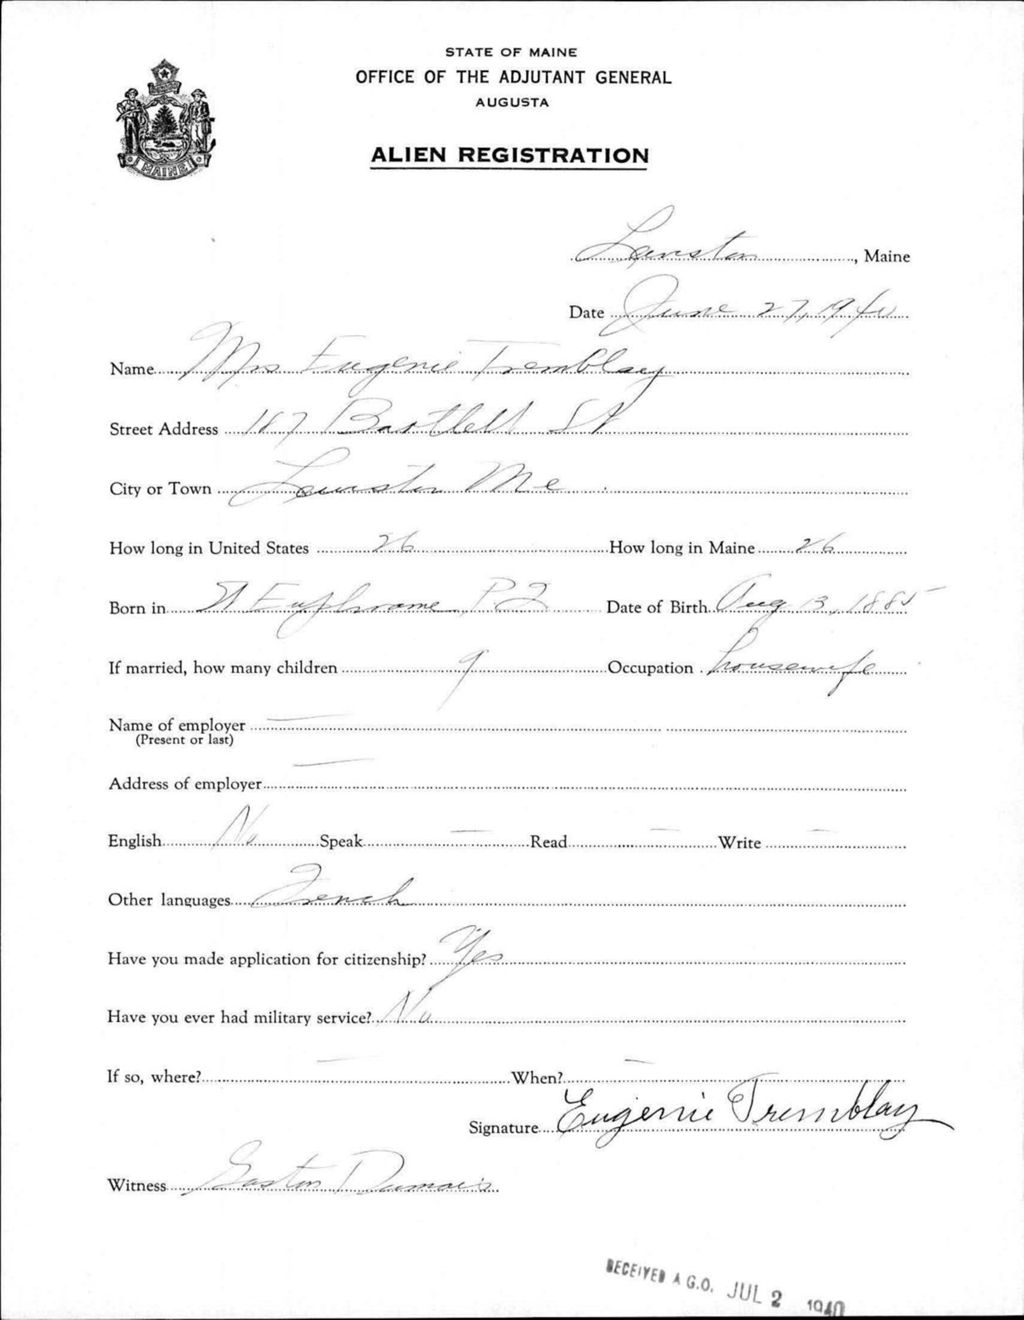 STATE OF MAINE
OFFICE OF THE ADJUTANT GENERAL
AUGUSTA
ALIEN REGISTRATION
MAINE
Lewiston, Maine
Date June 27, 1940
Name Mrs Eugenie Tremblay
Street Address 187 Bartlett St
City or Town Lewiston Me
How long in United States 26 How long in Maine 26
Born in St Euphrame, P2 Date of Birth Aug 13, 1885
If married, how many children 9 Occupation housewife
Name of employer —
(Present or last)
Address of employer —
English No Speak — Read — Write —
Other languages French
Have you made application for citizenship? Yes
Have you ever had military service? No
If so, where? — When? —
Signature Eugenie Tremblay
Witness Gaston Dumais
RECEIVED A.G.O. JUL 2 1940